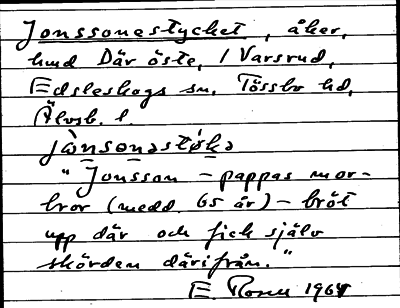 Jonssonestycket, åker,
hmd Där öste, / Varsrud,
Edsleskogs sn, Tössbo hd,
Älvsb. l.
jònsonəstýkə
"Jonsson – pappas mor-
bror (medd. 65 år) – bröt
upp där och fick själv
skörden därifrån."
E. Rosen 1964